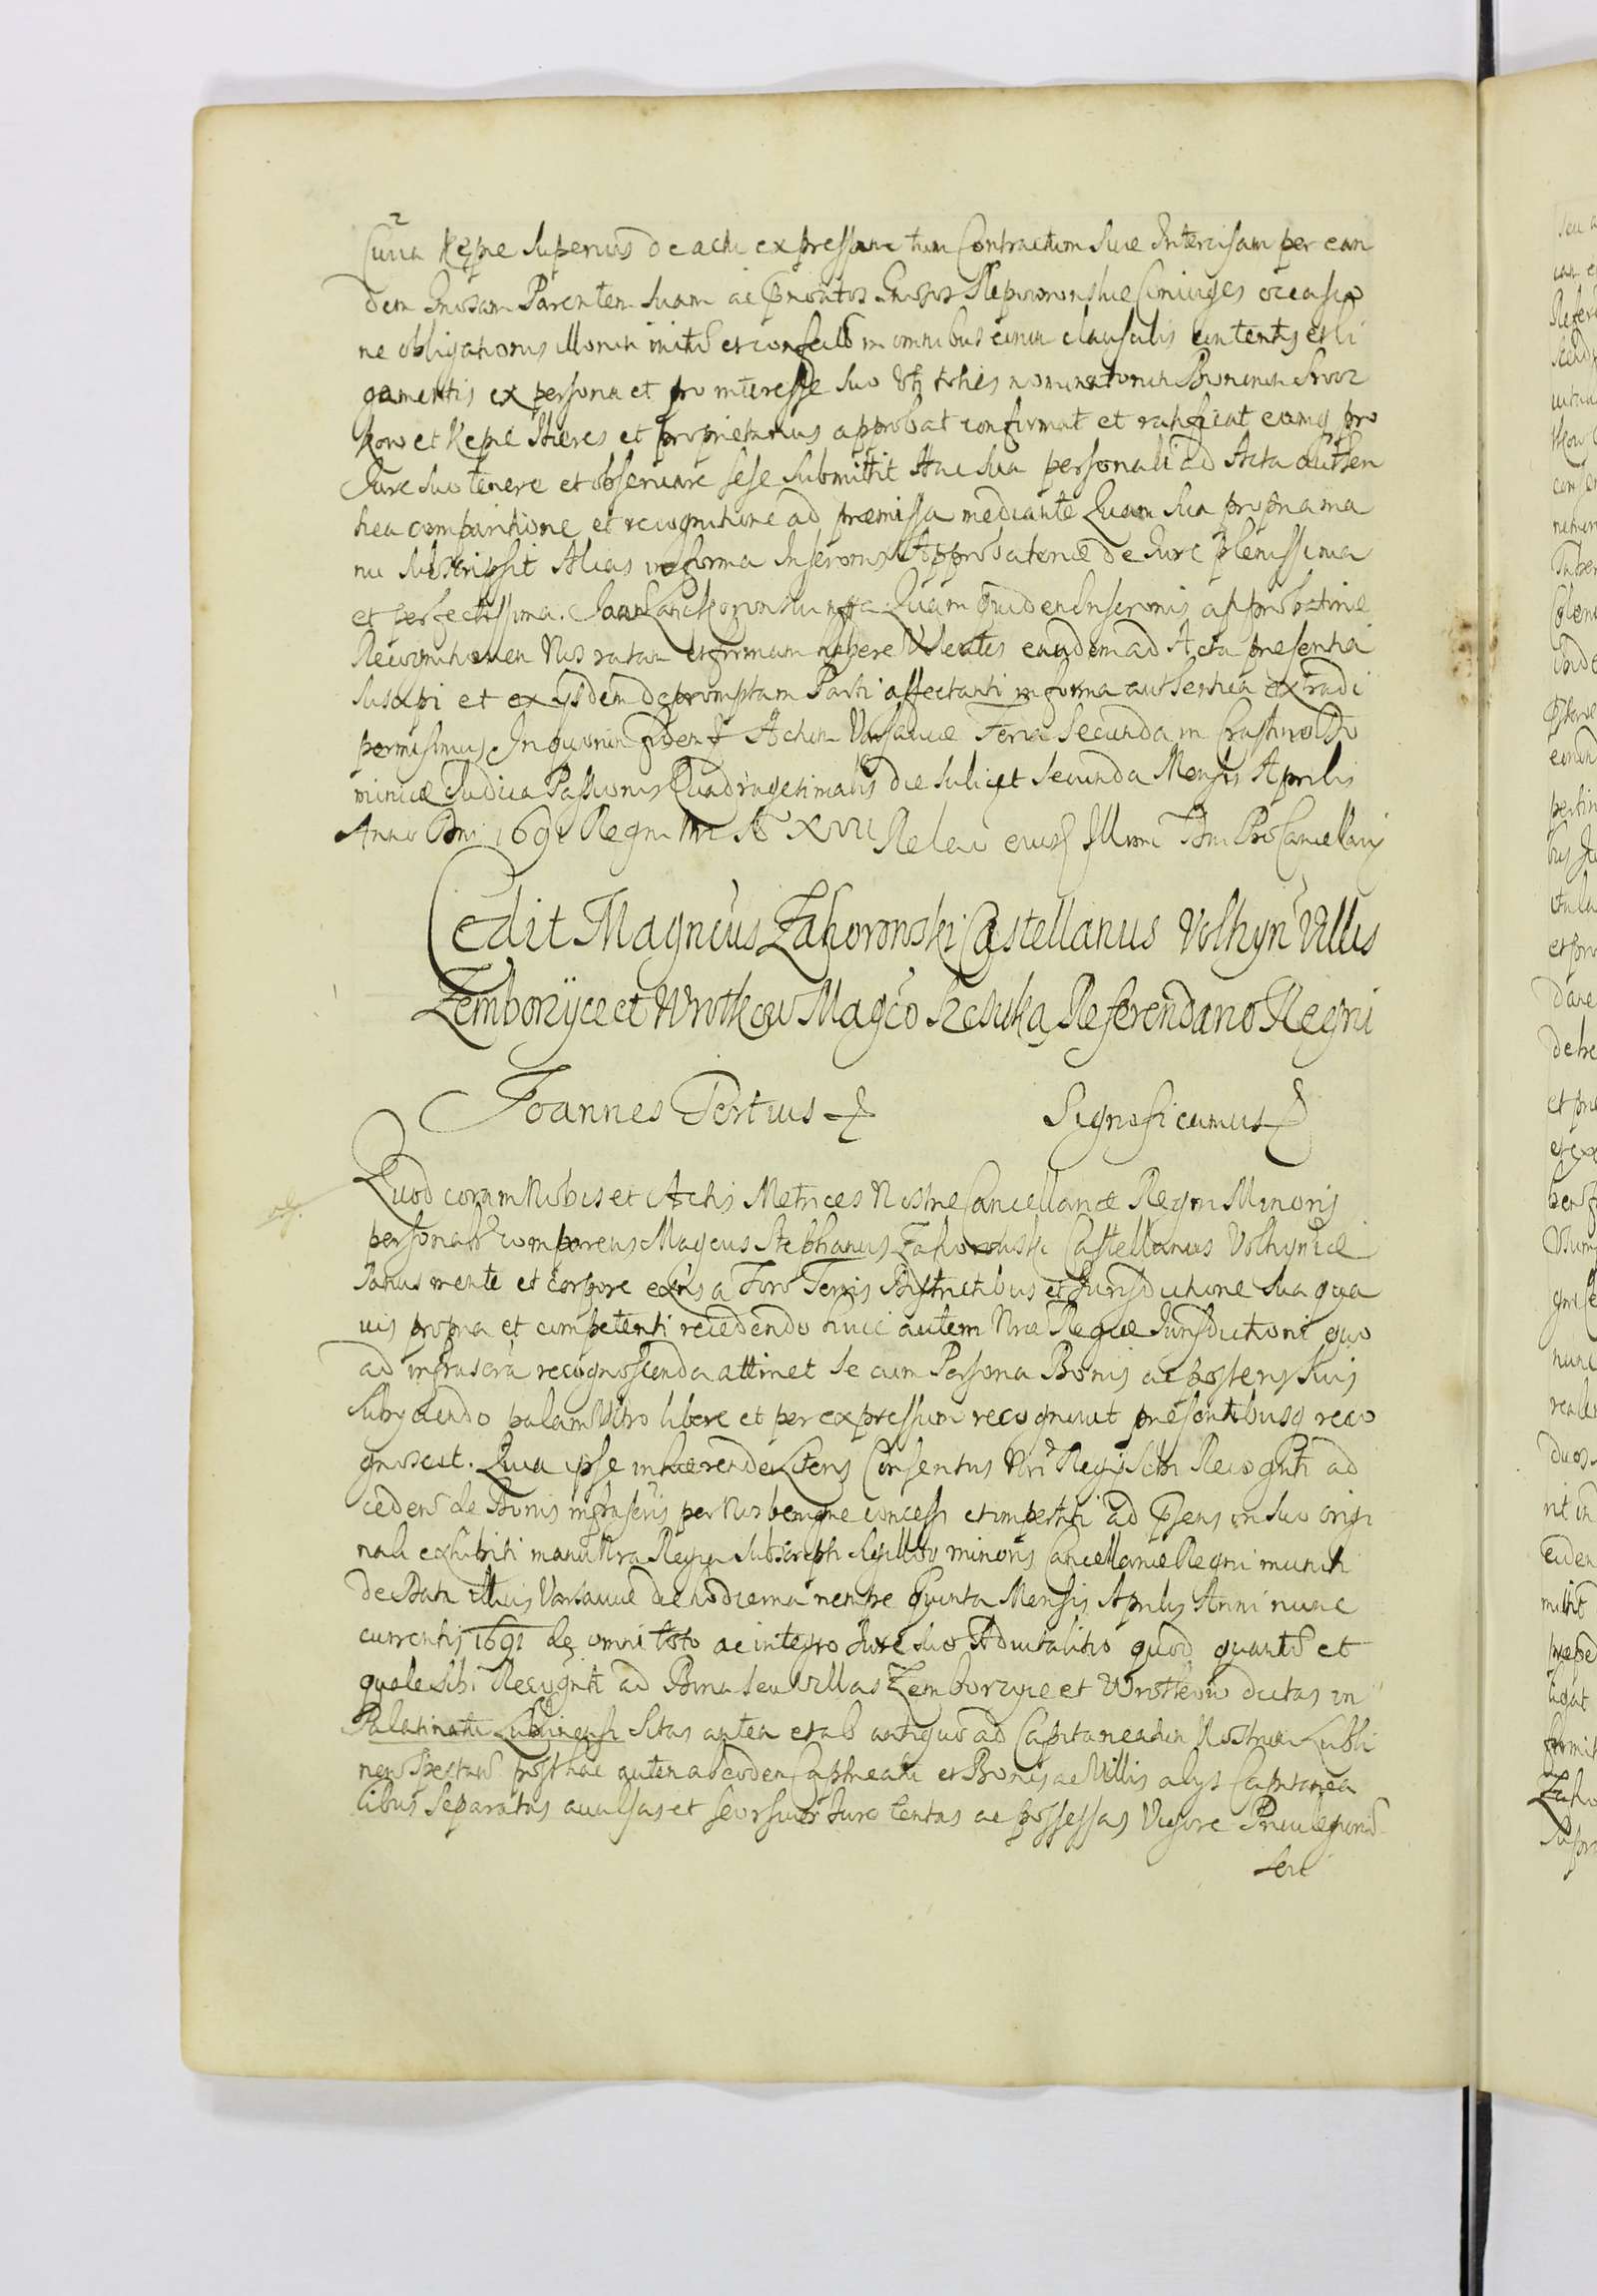 2
Curia Kępie superius de actu expressam tum Contractum sive Intercisam per ean
dem Gnosam Parentem suam ac Gnoratos Gnosos Conjuges occasio
ne obligationis illorum initũ et confectũ in omnibus eorum clausulis contentis et li
gamentis ex persona et pro interesse suo Uti toties nominatorum Bonorum
kow et Kępie Hæres et proprietarius approbat confirmat et ratificat eamq pro
Jure suo tenere et observare sese submittit Hac sua personali ad Acta authen
tica comparitione et recognitione ad præmissa mediante Quam sua propria ma
nu subscripsit Alias in forma Inscronis Approbatoriæ de Jure plenissima
et perfectissima. Jan Lanckoronski mpp Quam quidem Inscronis approbatoriæ
Recognitionem Nos ratam et firmam habere Volentes eandem ad Acta presentia
suscipi et ex ijsdem depromptam Parti affectanti in forma authentica extradi
permisimus In quorum fidem Actum Varsaviæ Feria Secunda in Crastino Do
minicæ Judica Passionis Quadragesimalis die scilicet secunda Mensis Aprilis
Anno Dni 1691 Regni Nri Ao XVII Relao eiusd Illmi Dni ProCancellarij
Cedit Magncus Zahorowski Castellanus Volhyn Villis
Zemborzyce et Wrotkow Magco Rzesuka Referendario Regni
Joannes Tertius
Significamus
Quod coram Nobis et Actis Metrices Nostræ Cancellariæ Regni Minoris
personalr comparens Magcus Stephanus Zahorowski Castellanus Volhyniæ
sanus mente et corpore exns a Foro Terris Districtibus et Jurisdictione sua qua
vis propria et competenti recedendo huic autem Nræ Regiæ Jurisdictioni quo
ad infrascra recognoscenda attinet se cum Persona Bonis ac posteris suis
subijciendo palam Ultro libere et per expressum recognovit presentibusq reco
gnoscit. Quia ipse inhærendo Literis Consensus Nri Regij sibi Recognti ad
cedend de Bonis infrascris per Nos benigne concessi et impertiti ad Præsens in suo origi
nali exhibiti manu Nra Regia subscripti sigilloq minoris Cancellariæ Regni muniti
de Data illius Varsaviæ die hodierna nempe Quinta Mensis Aprilis Anni nunc
currentis 1691 de omni toto ac integro Jure suo Advitalitio quod quantũ et
quale sibi Recognti ad Bona seu Villas Zemborzyce et Wrotkow dictas in
Palatinatu Lublinensi sitas antea et ab antiquo ad Capitaneatum Nostrum Lubli
nens spectan post hac autem ab eodem Captneatu et Bonis ac Villis alijs Capitanea
libus separatas avulsas et seorsivo Jure tentas ac possessas Vigore Privilegiorũ
seu